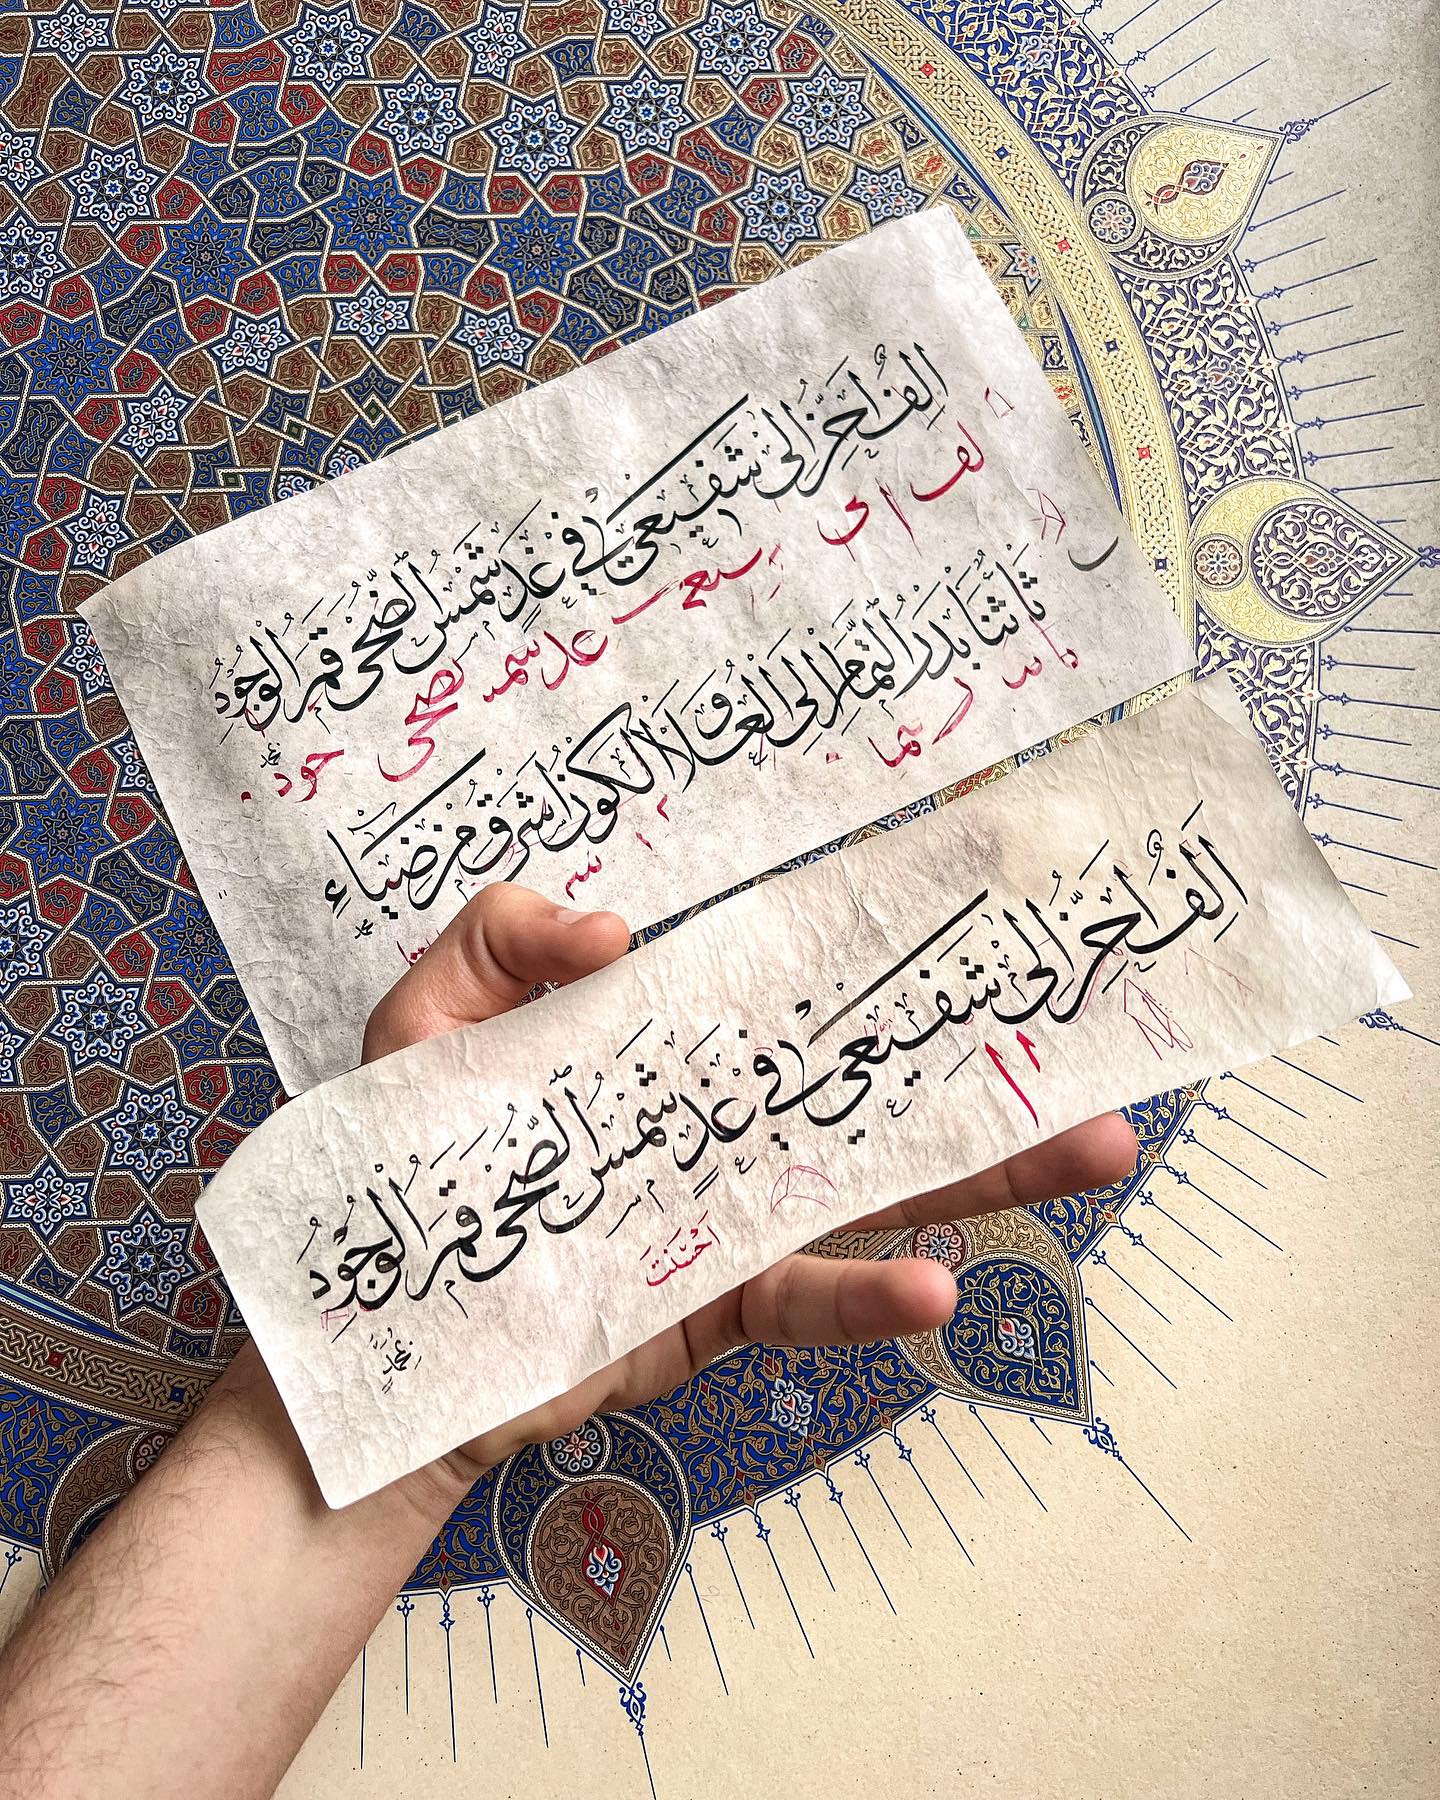 الف اخر الى شفيعي في غد شمس الضحى قمر الوجود محمد
تا ثنا بدر التمام الى العلا والكون اشرق من ضياء محمد
اَلِف اُخر الى شفيعي في غدٍ شمس الضحى قمر الوجود محمد
اَحْسَنْتَ